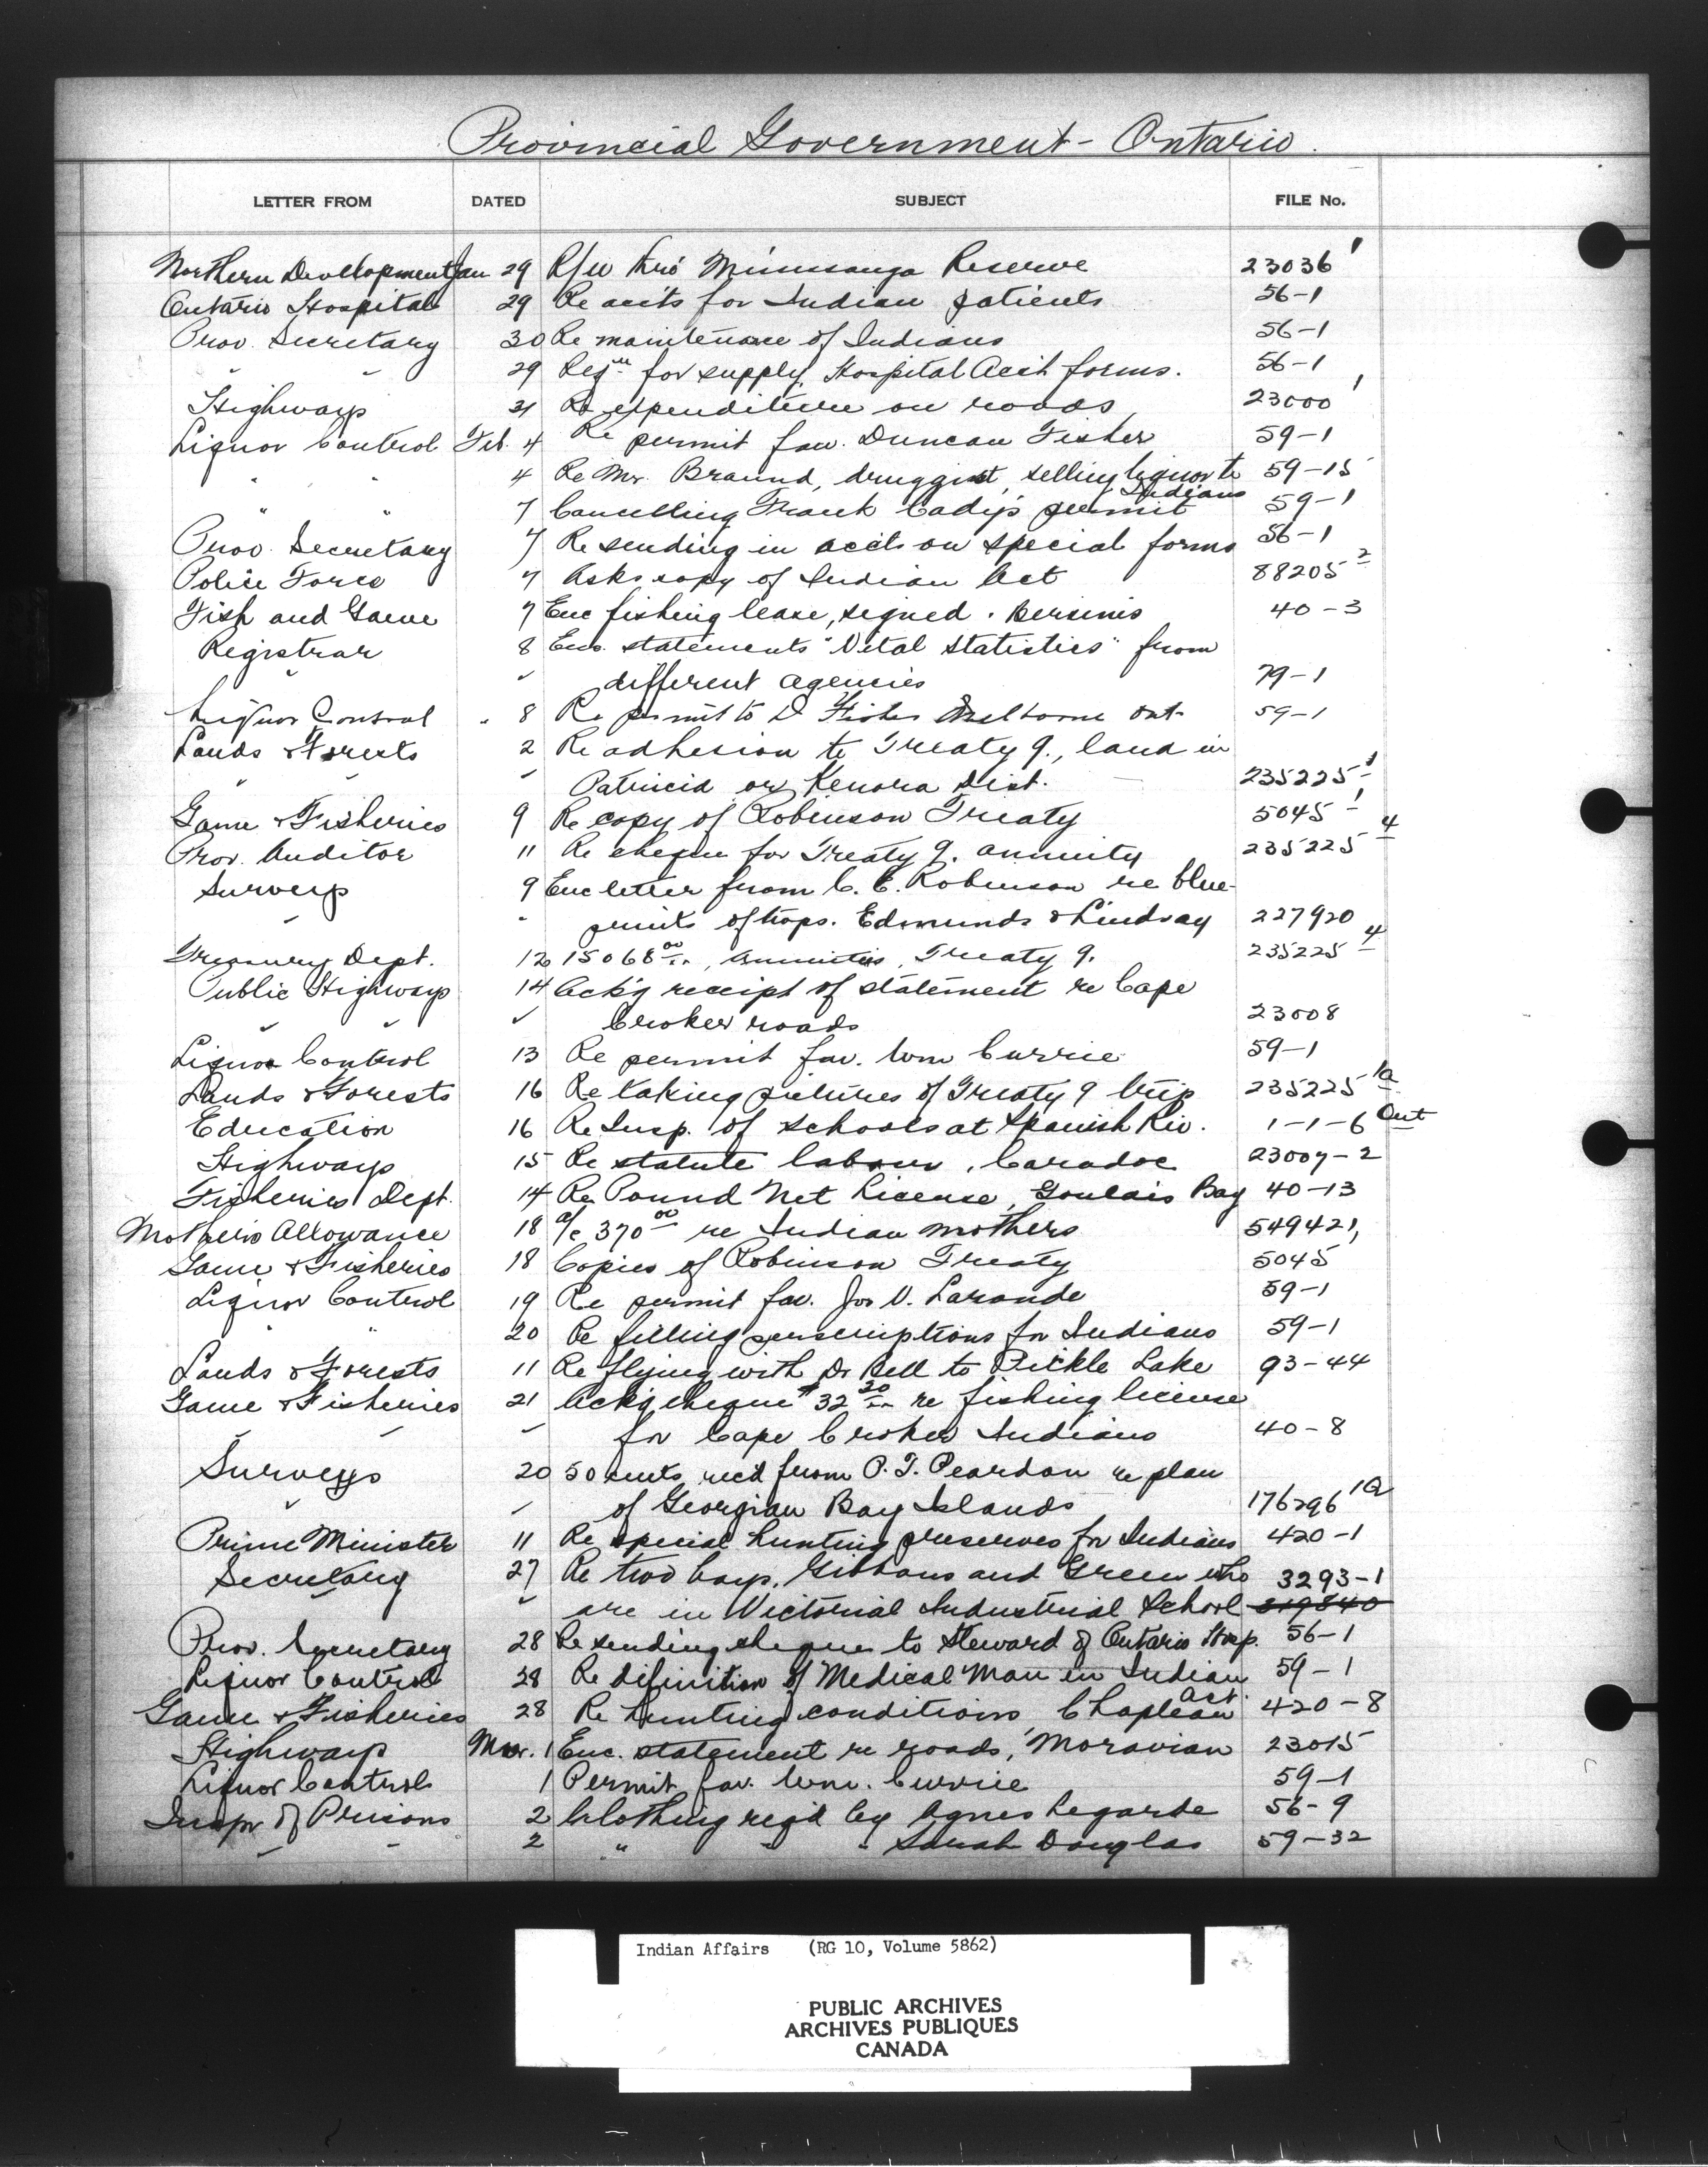 Provincial Government - Ontario.
LETTER FROM DATED SUBJECT FILE No.
Northern Development Jan 29 R/W thro' Mississauga Reserve 23036 1
Ontario Hospital 29 Re accts for Indian patients 56-1
Prov. Secretary 30 Re maintenance of Indians 56-1
" " 29 for supply Hospital Acct forms. 56-1
Highways 31 Re expenditure on roads 23000 1
Liquor Control Feb. 4 Re permit fav. Duncan Fisher 59-1
" " 4 Re Mr. Braund, druggist, selling liquor to Indians 59-15
" " 7 Cancelling Frank Cady's permit 59-1
Prov. Secretary 7 Re sending in accts on special forms 56-1
Police Force 7 Asks copy of Indian Act 88205 2
Fish and Game 7 Enc fishing lease, signed. Bersimis 40-3
Registrar 8 Enc. statements "Vital Statistics" from
" " different agencies 79-1
Liquor Control " 8 Re permit to D Fisher Melborne Ont 59-1
Lands & Forests 2 Re adhesion to Treaty 9., land in
" " Patricia or Kenora Dist. 235225-1
Game & Fisheries 9 Re copy of Robinson Treaty 5045-1
Prov. Auditor 11 Re cheque for Treaty 9. annuity 235225 4
Surveys 9 Enc letter from C. E. Robinson re blue-
" " prints of twps. Edmunds & Lindsay 227920
Treasury Dept. 12 15068 00, annuities, Treaty 9. 235225 4
Public Highways 14 Ack'g receipt of statement re Cape
" " " Croker roads 23008
Liquor Control 13 Re permit fav. Wm Currie 59-1
Lands & Forests 16 Re taking pictures of Treaty 9 trip 235225 1a
Education 16 Re Insp. of schools at Spanish Riv. 1-1-6 Ont
Highways 15 Re statute labour, Caradoc 23007-2
Fisheries Dept. 14 Re Pound Net License, Goulais Bay 40-13
Mother's Allowance 18 a/c 370 00 re Indian mothers 549421,
Game & Fisheries 18 Copies of Robinson Treaty 5045
Liquor Control 19 Re permit fav. Jos V. Laronde 59-1
" " 20 Re filling perscriptions for Indians 59-1
Lands & Forests 11 Re flying with Dr Bell to Pickle Lake 93-44
Game & Fisheries 21 Ack'g cheque $32 20 re fishing license
" " " for Cape Croker Indians 40-8
Surveys 20 50 cents rec'd from P. T. Peardon re plan
" " of Georgian Bay Islands 176296 1a
Prime Minister 11 Re special hunting preserves for Indians 420-1
Secretary 27 Re two boys, Gibbons and Green who 3293-1
" " are in Victorial Industrial School 319840
Prov. Secretary 28 Re sending cheque to Steward of Ontario Hosp. 56-1
Liquor Control 28 Re difinition of Medical Man in Indian Act. 59-1
Game & Fisheries 28 Re hunting conditions, Chapleau 420-8
Highways Mar. 1 Enc. statement re roads, Moravian 23015
Liquor Control 1 Permit fav. Wm. Currie 59-1
Inspr of Prisons 2 Clothing req'd by Agnes Legarde 56-9
" " 2 " " " Sarah Douglas 59-32
Indian Affairs (RG 10, Volume 5862)
PUBLIC ARCHIVES
ARCHIVES PUBLIQUES
CANADA